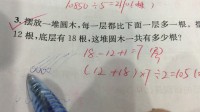 10850÷5=2170(棵)
3. 摆放一堆圆木，每一层都比下面一层少一根。
12根，底层有18根，这堆圆木一共有多少根？
18-12+1=7
(12+18)×7÷2=105(